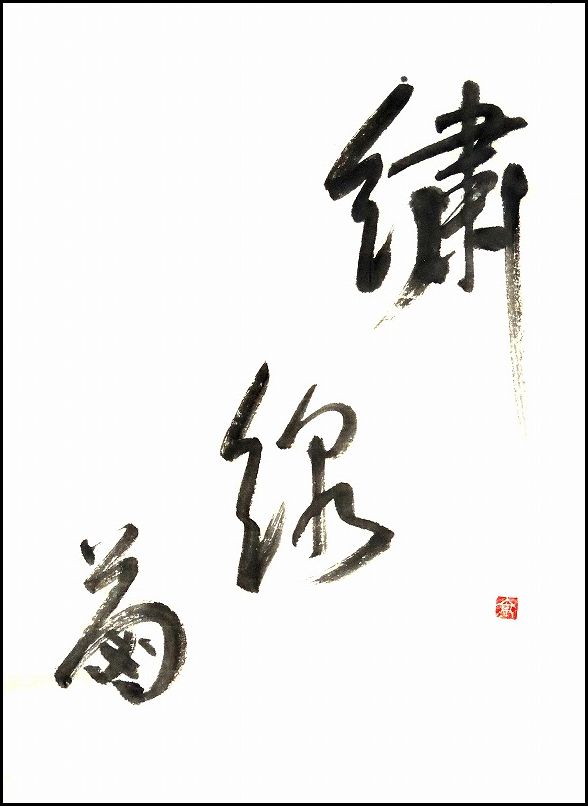 繡
線
菊